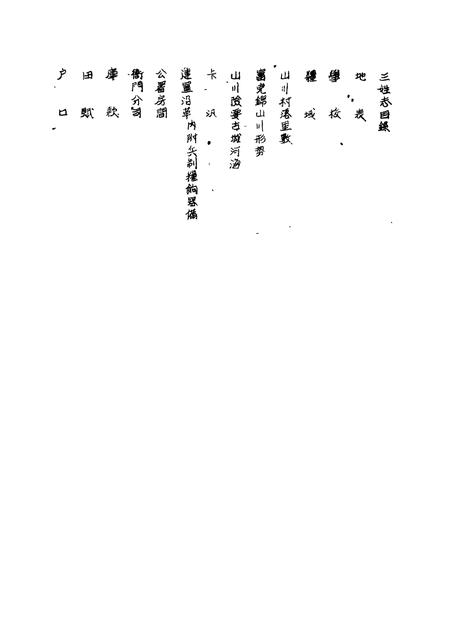 三姓志目錄
地表
學校
疆域
山川村落里數
富克錦山川形势
山川險要古城河海
卡汛
建置沿革內附兵制糧餉器偹
公署房間
衙門分司
庫款
田賦
户口